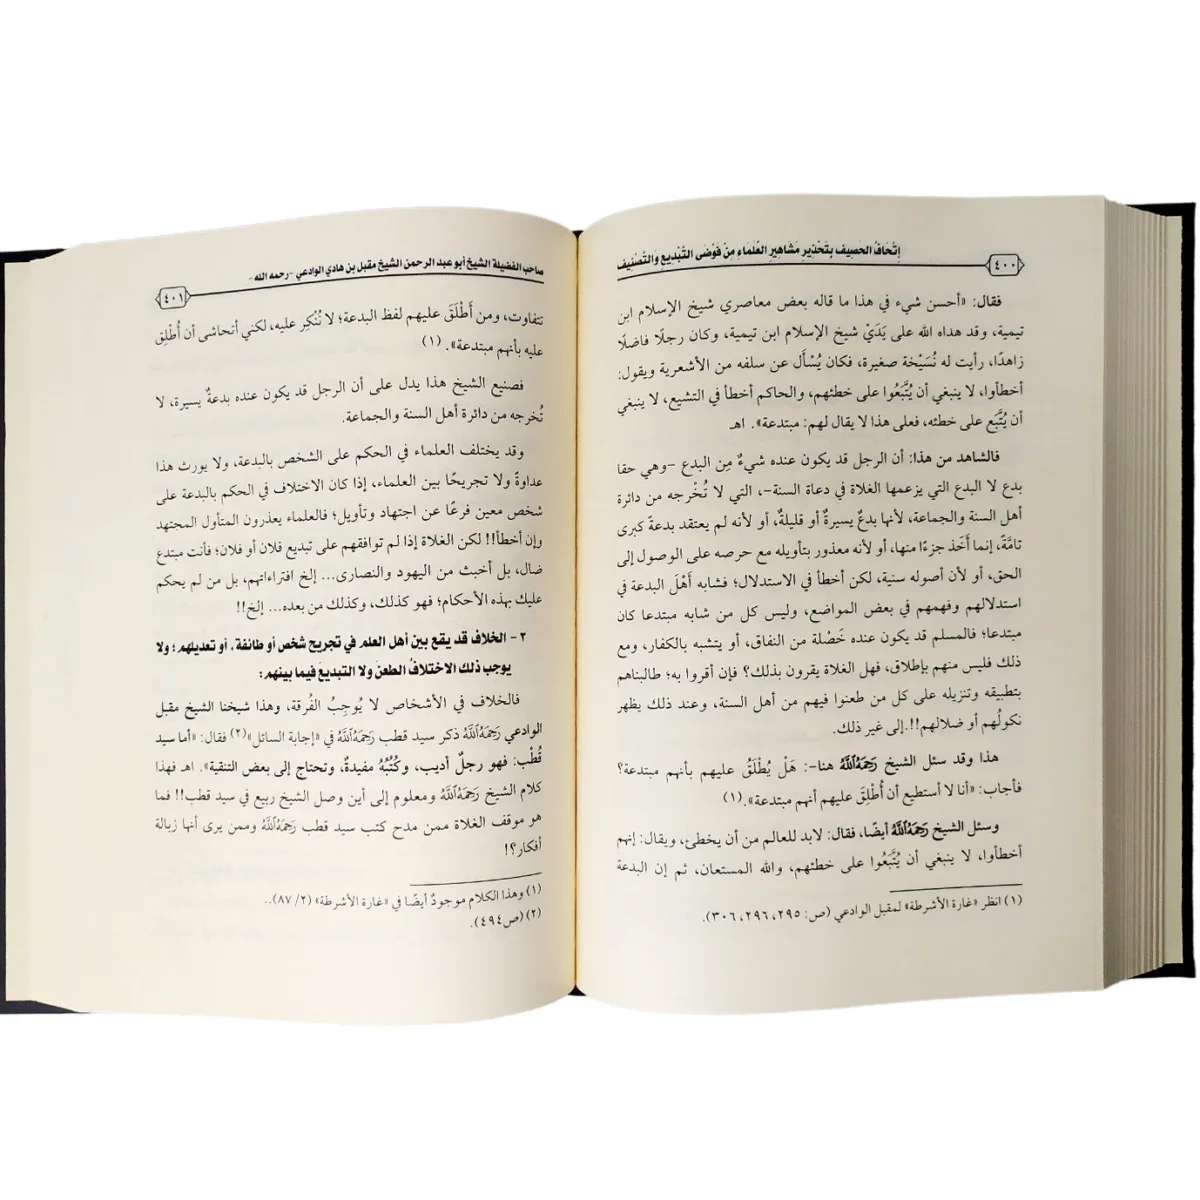 إتحاف الحصيف بتحذير مشاهير العلماء من فوضى التبديع والتصنيف
٤٠٠
فقال: «أحسن شيء في هذا ما قاله بعض معاصري شيخ الإسلام ابن
تيمية، وقد هداه الله على يَدَيْ شيخ الإسلام ابن تيمية، وكان رجلًا فاضلًا
زاهدًا، رأيت له نُسَيْخة صغيرة، فكان يُسْأَل عن سلفه من الأشعرية ويقول:
أخطأوا، لا ينبغي أن يُتَّبَعُوا على خطئهم، والحاكم أخطأ في التشيع، لا ينبغي
أن يُتَّبَع على خطئه، فعلى هذا لا يقال لهم: مبتدعة». اهـ
فالشاهد من هذا: أن الرجل قد يكون عنده شيءٌ مِن البدع -وهي حقا
بدع لا البدع التي يزعمها الغلاة في دعاة السنة-، التي لا تُخْرجه من دائرة
أهل السنة والجماعة، لأنها بدعٌ يسيرةٌ أو قليلةٌ، أو لأنه لم يعتقد بدعةً كبرى
تامَّةً، إنما أَخَذ جزءًا منها، أو لأنه معذور بتأويله مع حرصه على الوصول إلى
الحق، أو لأن أصوله سنية، لكن أخطأ في الاستدلال؛ فشابه أَهْلَ البدعة في
استدلالهم وفهمهم في بعض المواضع، وليس كل من شابه مبتدعا كان
مبتدعا؛ فالمسلم قد يكون عنده خَصْلة من النفاق، أو يتشبه بالكفار، ومع
ذلك فليس منهم بإطلاق، فهل الغلاة يقرون بذلك؟ فإن أقروا به؛ طالبناهم
بتطبيقه وتنزيله على كل من طعنوا فيهم من أهل السنة، وعند ذلك يظهر
نكولُهم أو ضلالهم!!.إلى غير ذلك.
هذا وقد سئل الشيخ رَحِمَهُ ٱللَّهُ هنا-: هَلْ يُطْلَقُ عليهم بأنهم مبتدعة؟
فأجاب: «أنا لا أستطيع أن أُطْلِقَ عليهم أنهم مبتدعة».(١)
وسئل الشيخ رَحِمَهُ ٱللَّهُ أيضًا، فقال: لابد للعالم من أن يخطئ، ويقال: إنهم
أخطأوا، لا ينبغي أن يُتَّبَعُوا على خطئهم، والله المستعان، ثم إن البدعة
(١) انظر «غارة الأشرطة» لمقبل الوادعي (ص: ٢٩٥، ٢٩٦، ٣٠٦).
صاحب الفضيلة الشيخ أبو عبد الرحمن الشيخ مقبل بن هادي الوادعي -رحمه الله-
٤٠١
تتفاوت، ومن أَطْلَقَ عليهم لفظ البدعة؛ لا نُنْكِر عليه، لكني أتحاشى أن أُطْلِق
عليه بأنهم مبتدعة». (١)
فصنيع الشيخ هذا يدل على أن الرجل قد يكون عنده بدعةٌ يسيرة، لا
تُخرجه من دائرة أهل السنة والجماعة.
وقد يختلف العلماء في الحكم على الشخص بالبدعة، ولا يورث هذا
عداوةً ولا تجريحًا بين العلماء، إذا كان الاختلاف في الحكم بالبدعة على
شخص معين فرعًا عن اجتهاد وتأويل؛ فالعلماء يعذرون المتأول المجتهد
وإن أخطأ!! لكن الغلاة إذا لم توافقهم على تبديع فلان أو فلان؛ فأنت مبتدع
ضال، بل أخبث من اليهود والنصارى... إلخ افتراءاتهم، بل من لم يحكم
عليك بهذه الأحكام؛ فهو كذلك، وكذلك من بعده... إلخ!!
٢- الخلاف قد يقع بين أهل العلم في تجريح شخص أو طائفة، أو تعديلهم؛ ولا
يوجب ذلك الاختلافُ الطعنَ ولا التبديعَ فيما بينهم:
فالخلاف في الأشخاص لا يُوجِبُ الفُرقة، وهذا شيخنا الشيخ مقبل
الوادعي رَحِمَهُ ٱللَّهُ ذكر سيد قطب رَحِمَهُ ٱللَّهُ في «إجابة السائل»(٢) فقال: «أما سيد
قُطْب: فهو رجلٌ أديب، وكُتُبُهُ مفيدةٌ، وتحتاج إلى بعض التنقية». اهـ فهذا
كلام الشيخ رَحِمَهُ ٱللَّهُ ومعلوم إلى أين وصل الشيخ ربيع في سيد قطب!! فما
هو موقف الغلاة ممن مدح كتب سيد قطب رَحِمَهُ ٱللَّهُ وممن يرى أنها زبالة
أفكار؟!
(١) وهذا الكلام موجودٌ أيضًا في «غارة الأشرطة» (٢/ ٨٧)..
(٢) (ص٤٩٤).